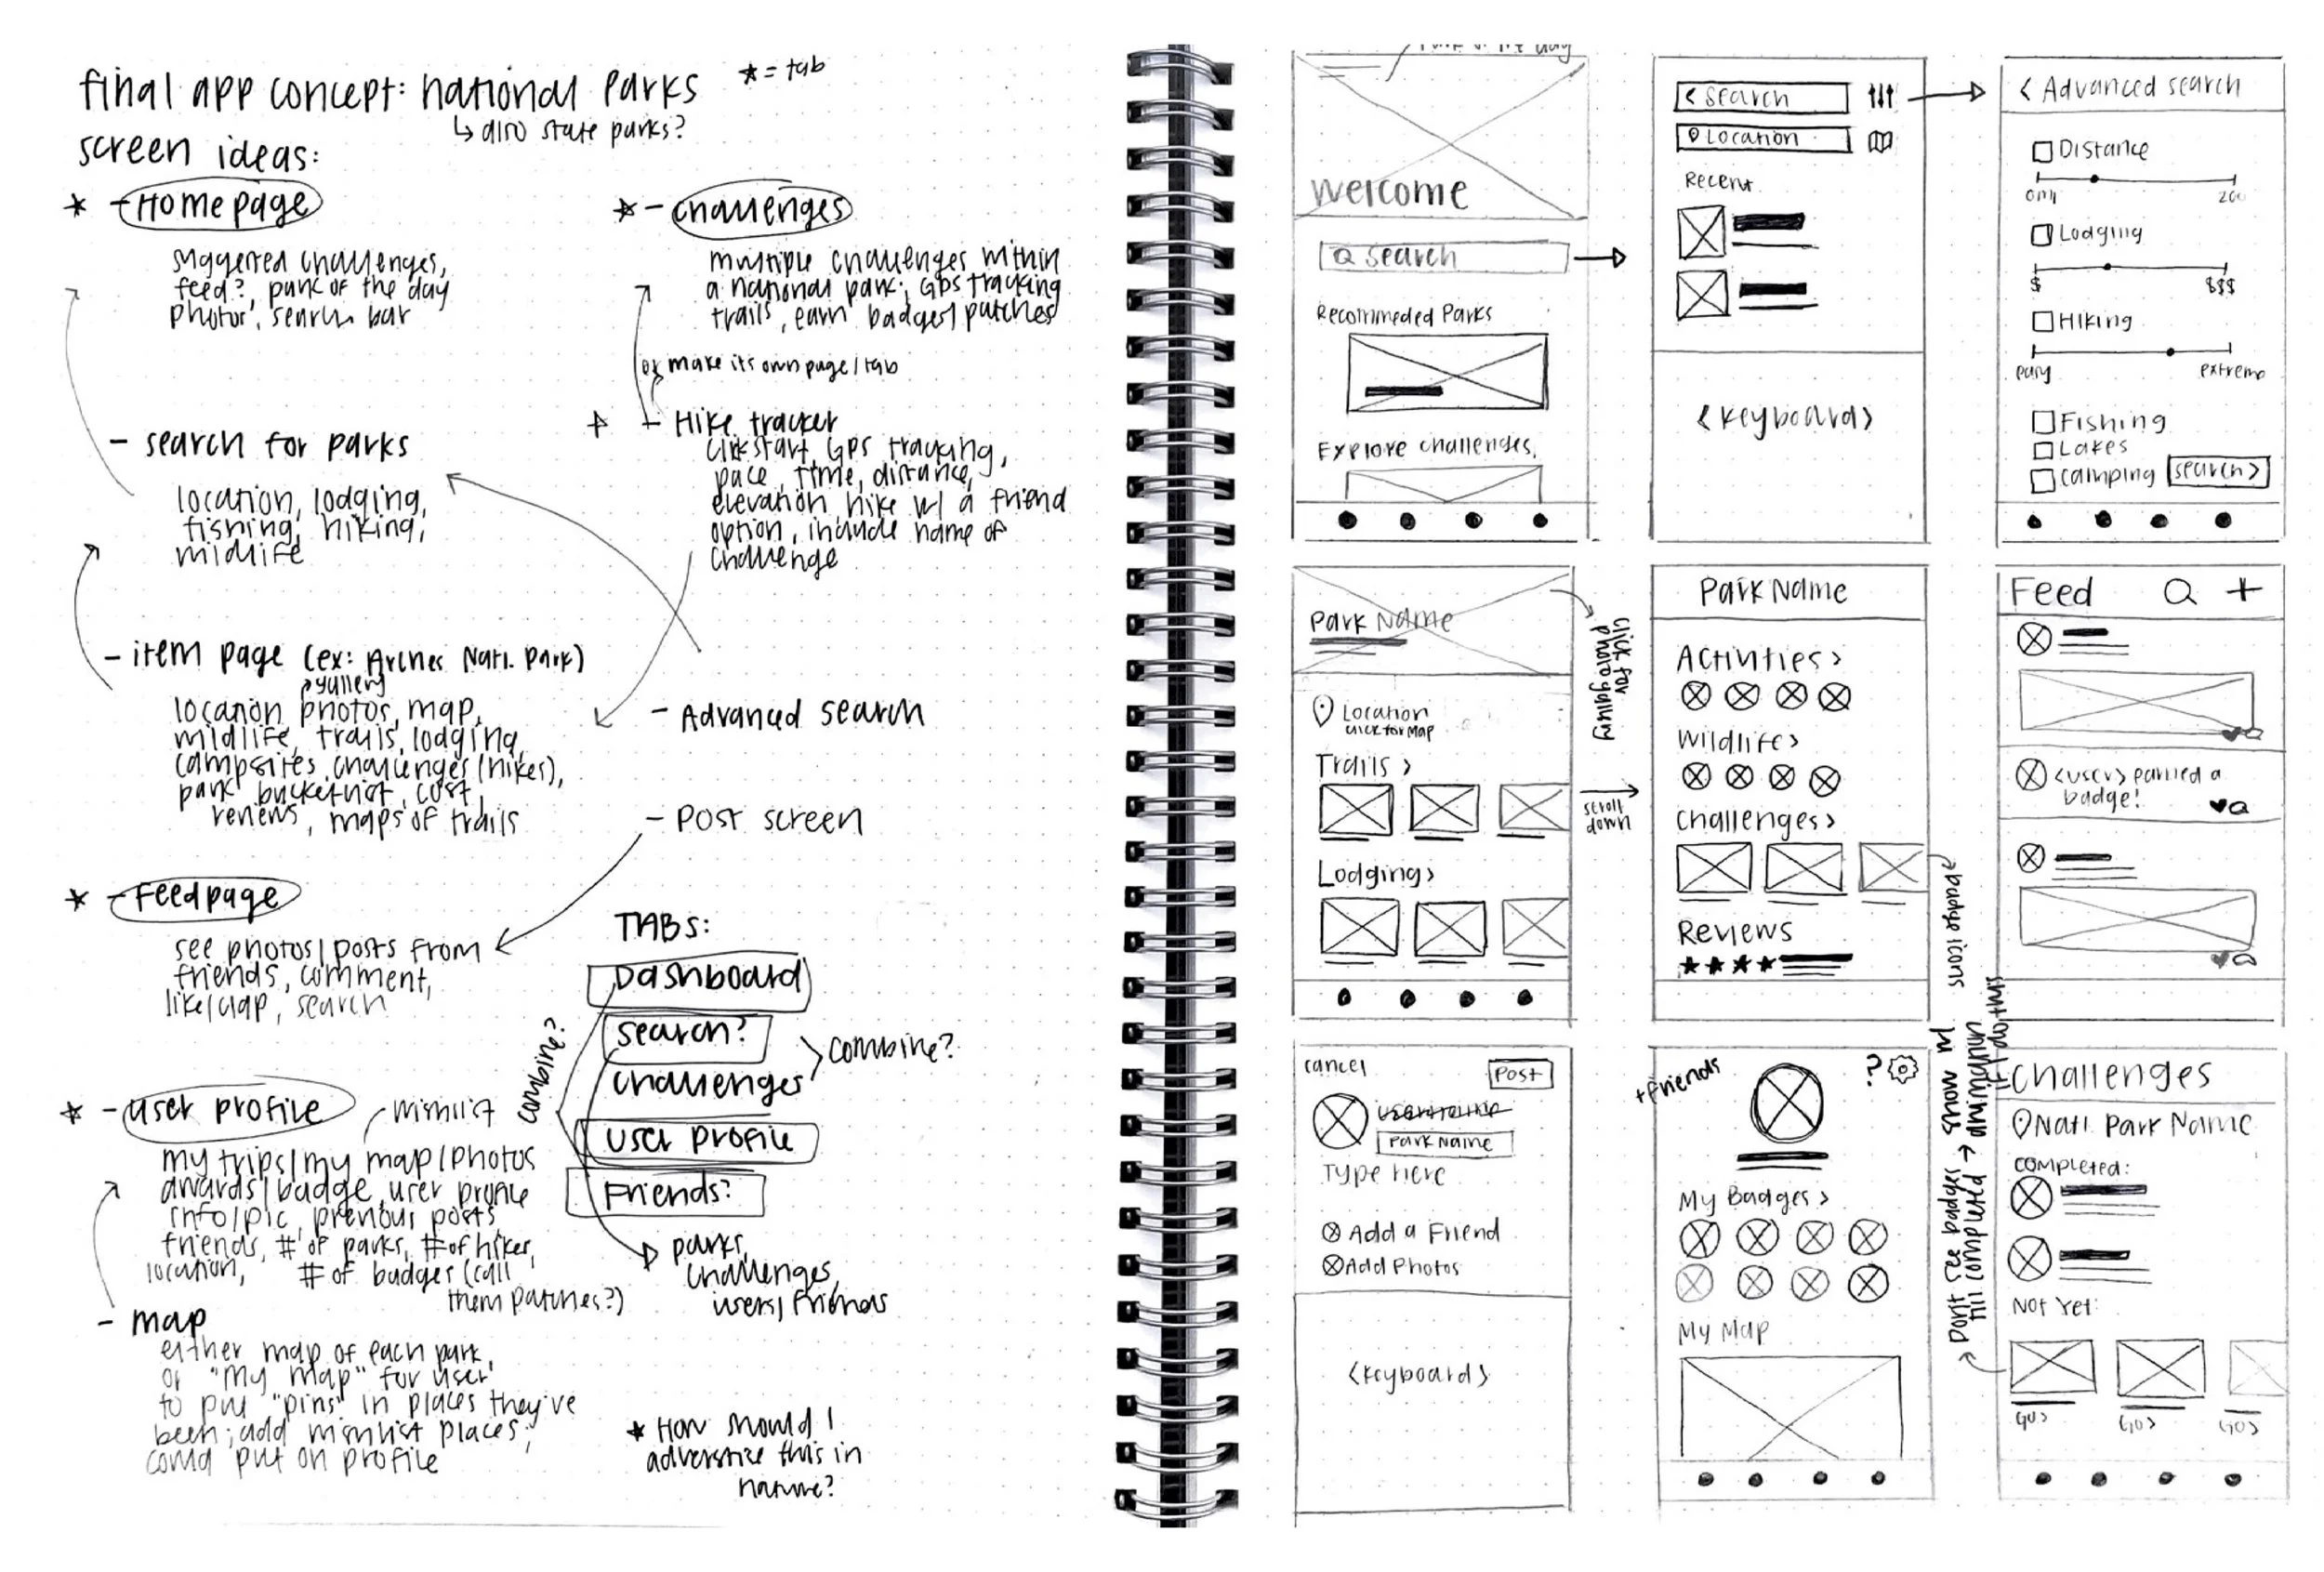 final app concept: national parks
★ = tab
↳ also state parks?
screen ideas:
★ - Homepage
suggested challenges,
feed?, park of the day
photos, search bar
- search for parks
location, lodging,
fishing, hiking,
wildlife
- item page (ex: Arches Natl. Park)
gallery
location photos, map,
wildlife, trails, lodging,
campsites, challenges (hikes),
park bucketlist, cost,
reviews, maps of trails
★ - Feed page
see photos/posts from
friends, comment,
like/clap, search
★ - user profile
wishlist
my trips/my map/photos
awards/badge, user profile
info/pic, previous posts
friends, # of parks, # of hikes,
location, # of badges (call
them patches?)
- map
either map of each park
or "my map" for user
to put "pins" in places they've
been; add wishlist places;
could put on profile
★ - challenges
multiple challenges within
a national park; GPS tracking
trails, earn badges/patches
or make its own page/tab
- Hike tracker
GPS tracking,
pace, time, distance,
elevation, hike w/ a friend
option, include name of
challenge
- Advanced search
- Post screen
TABS:
Dashboard
search?
challenges
user profile
Friends?
combine?
combine?
parks,
challenges,
users/friends
★ How should I
adverstize this in
nature?
Welcome
Search
Recommeded Parks
Explore challenges
< Search
Location
Recent
<keyboard>
< Advanced search
Distance
0mi
Lodging
$ $$$
Hiking
easy extreme
Fishing
Lakes
camping
search >
Park Name
click for
photo gallery
Location
click for map
Trails >
Lodging >
scroll
down
Park Name
Activities >
Wildlife >
Challenges >
Reviews
★★★★
badge icons
Feed +
<user> earned a
badge!
cancel
Post
Park Name
Type here
Add a Friend
Add Photos
<keyboard>
+friends
?
My Badges >
My Map
Dont see badges
till completed → show in
if I do this
Challenges
Natl Park Name
completed:
Not Yet:
Go> Go> Go>